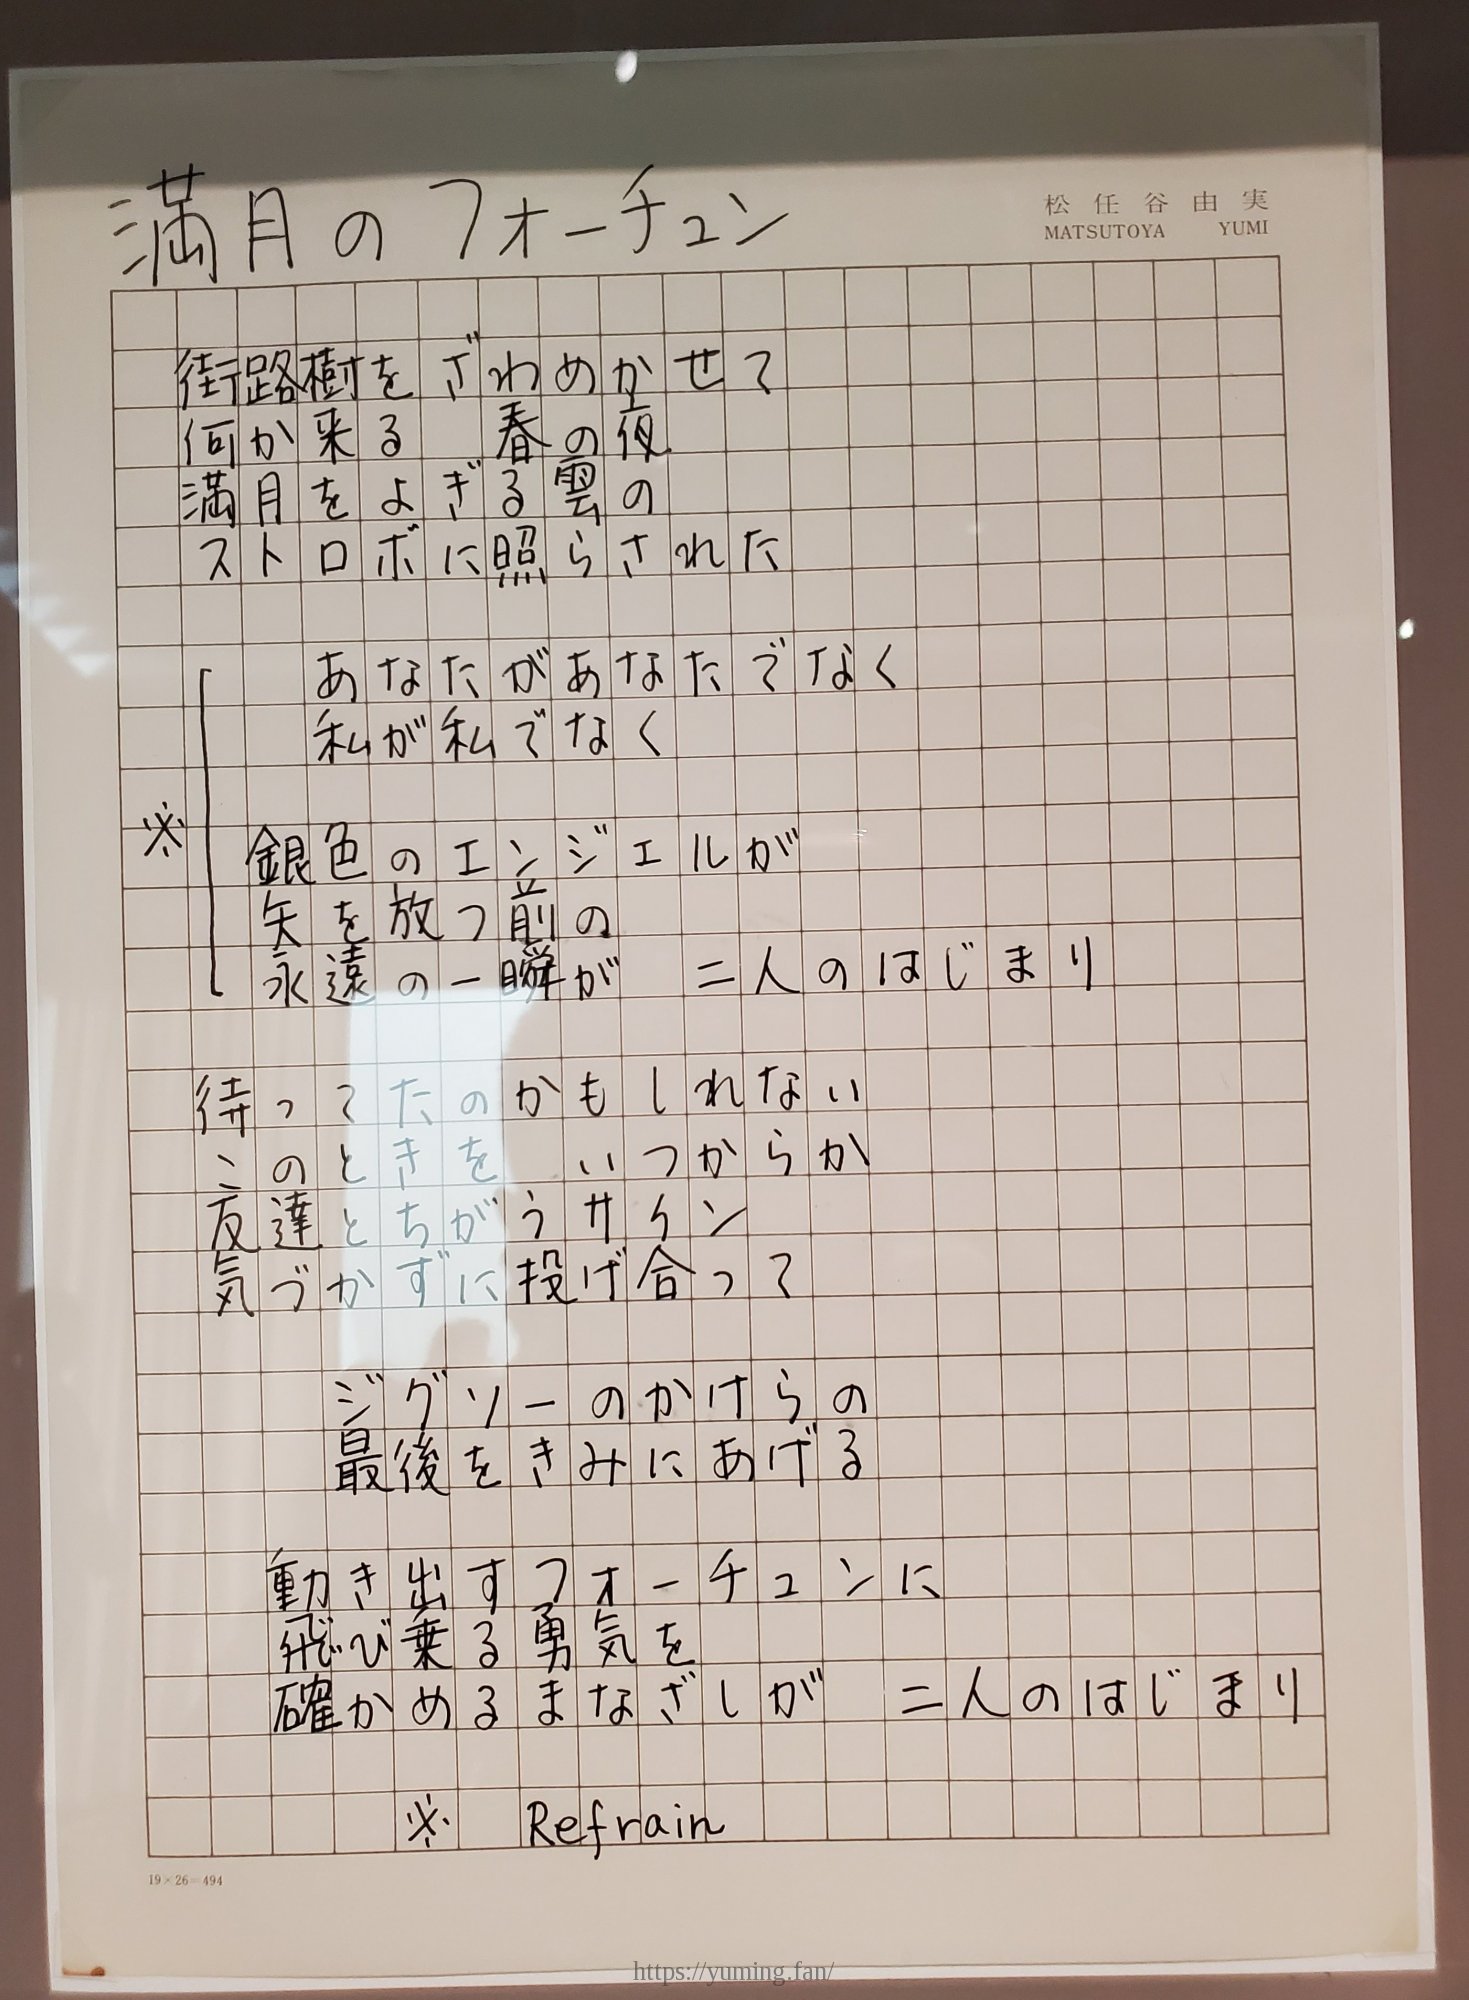 満月のフォーチュン
松任谷由実
MATSUTOYA YUMI
街路樹をざわめかせて
何か来る 春の夜
満月をよぎる雲の
ストロボに照らされた
あなたがあなたでなく
私が私でなく
※
銀色のエンジェルが
矢を放つ前の
永遠の一瞬が 二人のはじまり
待ってたのかもしれない
このときを いつからか
友達とちがうサイン
気づかずに投げ合って
ジグソーのかけらの
最後をきみにあげる
動き出すフォーチュンに
飛び乗る勇気を
確かめるまなざしが 二人のはじまり
※ Refrain
19×26=494
https://yuming.fan/